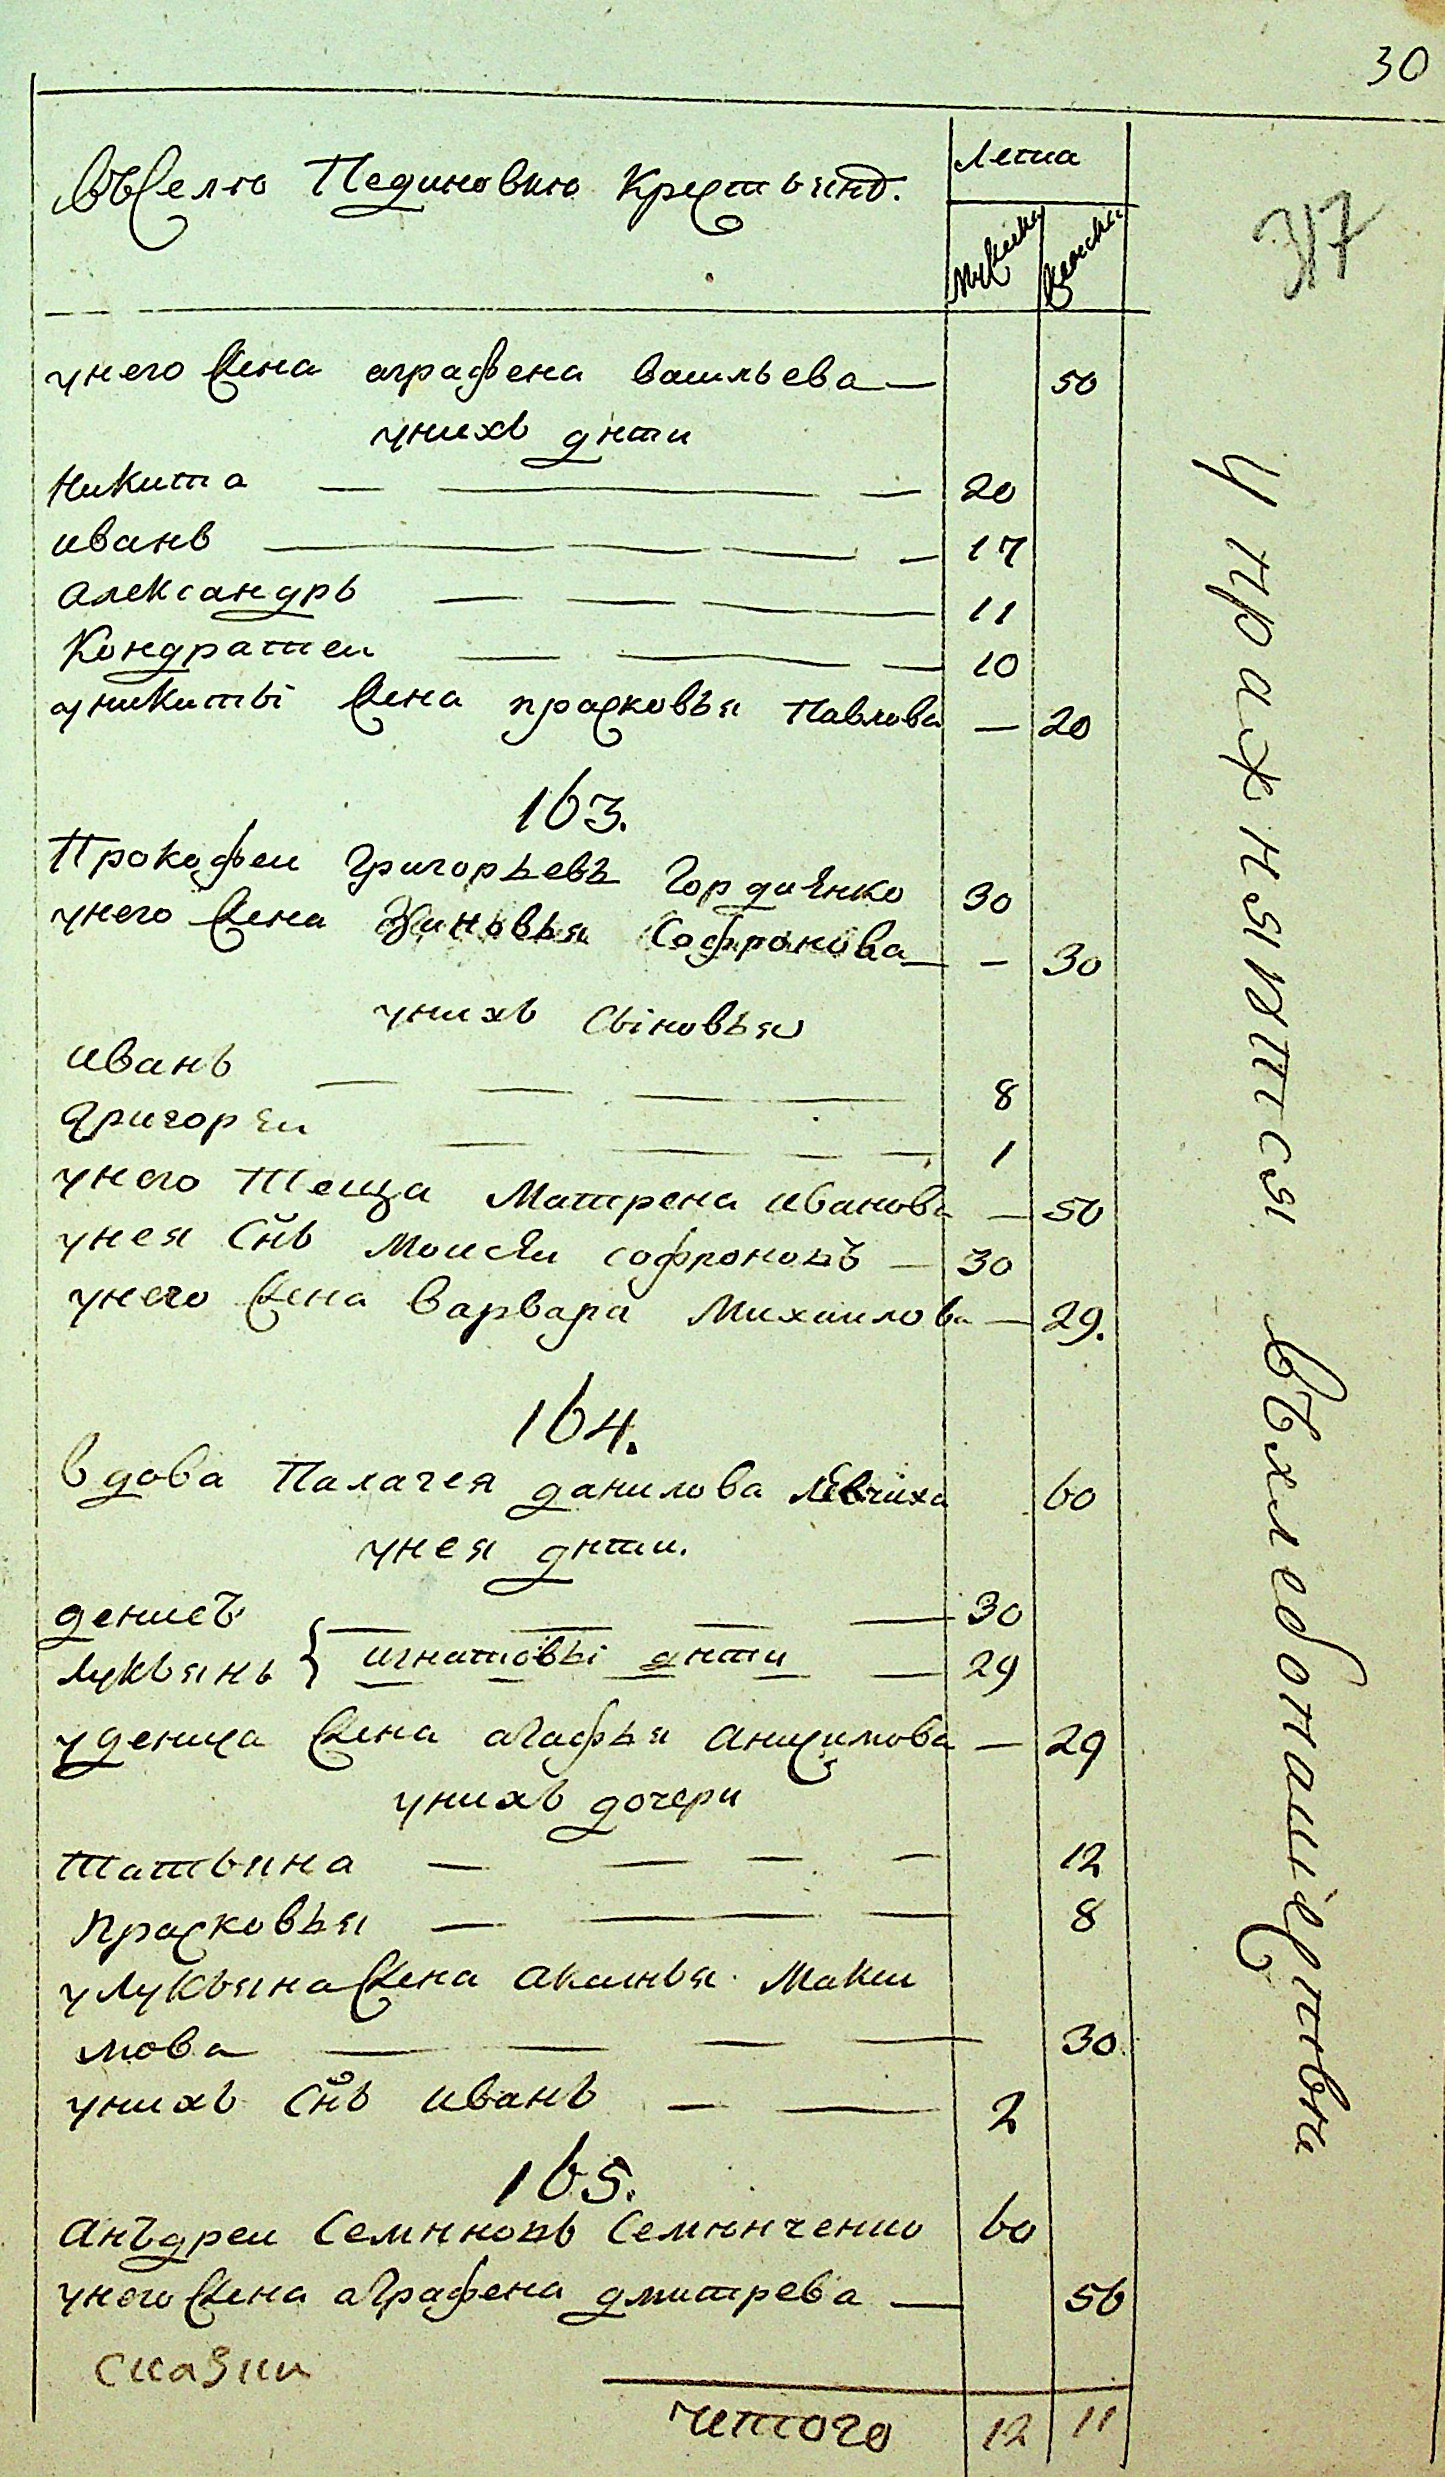 30
317
въселю Пединовкю Крестьянъ.
Лета
Мужеска
Женска
унего жена аграфена васильева — 50
унихъ дѣти
Никита — 20
иванъ — 17
Александръ — 11
Кондратеи — 10
уникиты жена прасковья Павлова — 20
163.
Прокофеи Григорьевъ Гордиѣнко 30
унего жена Зиновья Софронова — 30
унихъ сыновья
иванъ — 8
Григореи — 1
унего Теща Матрена иванова — 50
унея Снъ Моисеи софроновъ — 30
унего жена варвара Михаилова — 29.
164.
вдова Палагея данилова Левчиха 60
унея дѣти.
денисъ — 30
Лукьянъ } игнатовы дѣти — 29
уДениса жена агафья анисимова — 29
унихъ дочери
Татьяна — 12
прасковья — 8
уЛукьяна жена акилья Макси
мова — 30
унихъ Снъ иванъ — 2
165.
Анъдреи Семѣновъ Семѣнченко 60
унего жена аграфена дмитрева — 56
сказки
читого 12 11
Упражняютса въхлебопашествѣ